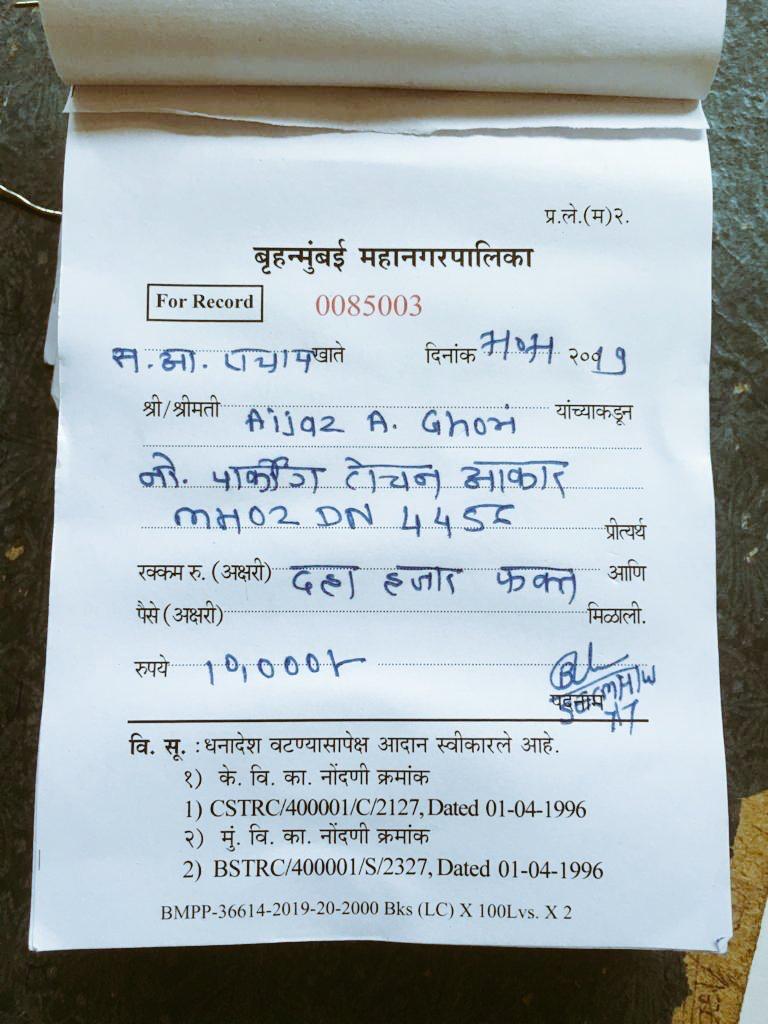 प्र.ले.(म)२.
बृहन्मुंबई महानगरपालिका
For Record 0085003
स.आ. एचाप खाते दिनांक २०१9
श्री/श्रीमती Aijaz A. Ghori यांच्याकडून
नो. पार्कींग टोचन आकार
MH02 DN 445 प्रीत्यर्थ
रक्कम रु. (अक्षरी) दहा हजार फक्त आणि
पैसे (अक्षरी) मिळाली.
रुपये 10,000/-
पदनाम
वि. सू. : धनादेश वटण्यासापेक्ष आदान स्वीकारले आहे.
१) के. वि. का. नोंदणी क्रमांक
1) CSTRC/400001/C/2127, Dated 01-04-1996
२) मुं. वि. का. नोंदणी क्रमांक
2) BSTRC/400001/S/2327, Dated 01-04-1996
BMPP-36614-2019-20-2000 Bks (LC) X 100Lvs. X 2